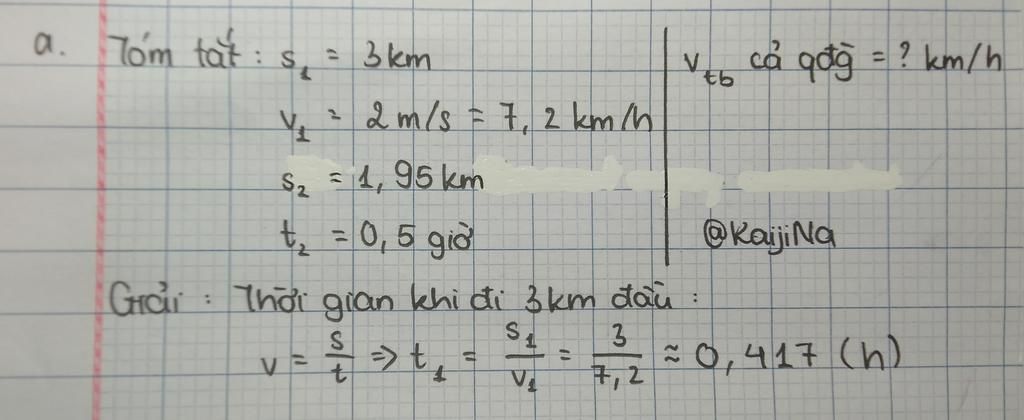 a. Tóm tắt : s₁ = 3km
v₁ = 2 m/s = 7,2 km/h
s₂ = 1,95 km
t₂ = 0,5 giờ
v_tb cả qđg̃ = ? km/h
@KaijiNa
Giải : Thời gian khi đi 3km đầu :
v = s/t => t₁ = s₁/v₁ = 3/7,2 ≈ 0,417 (h)